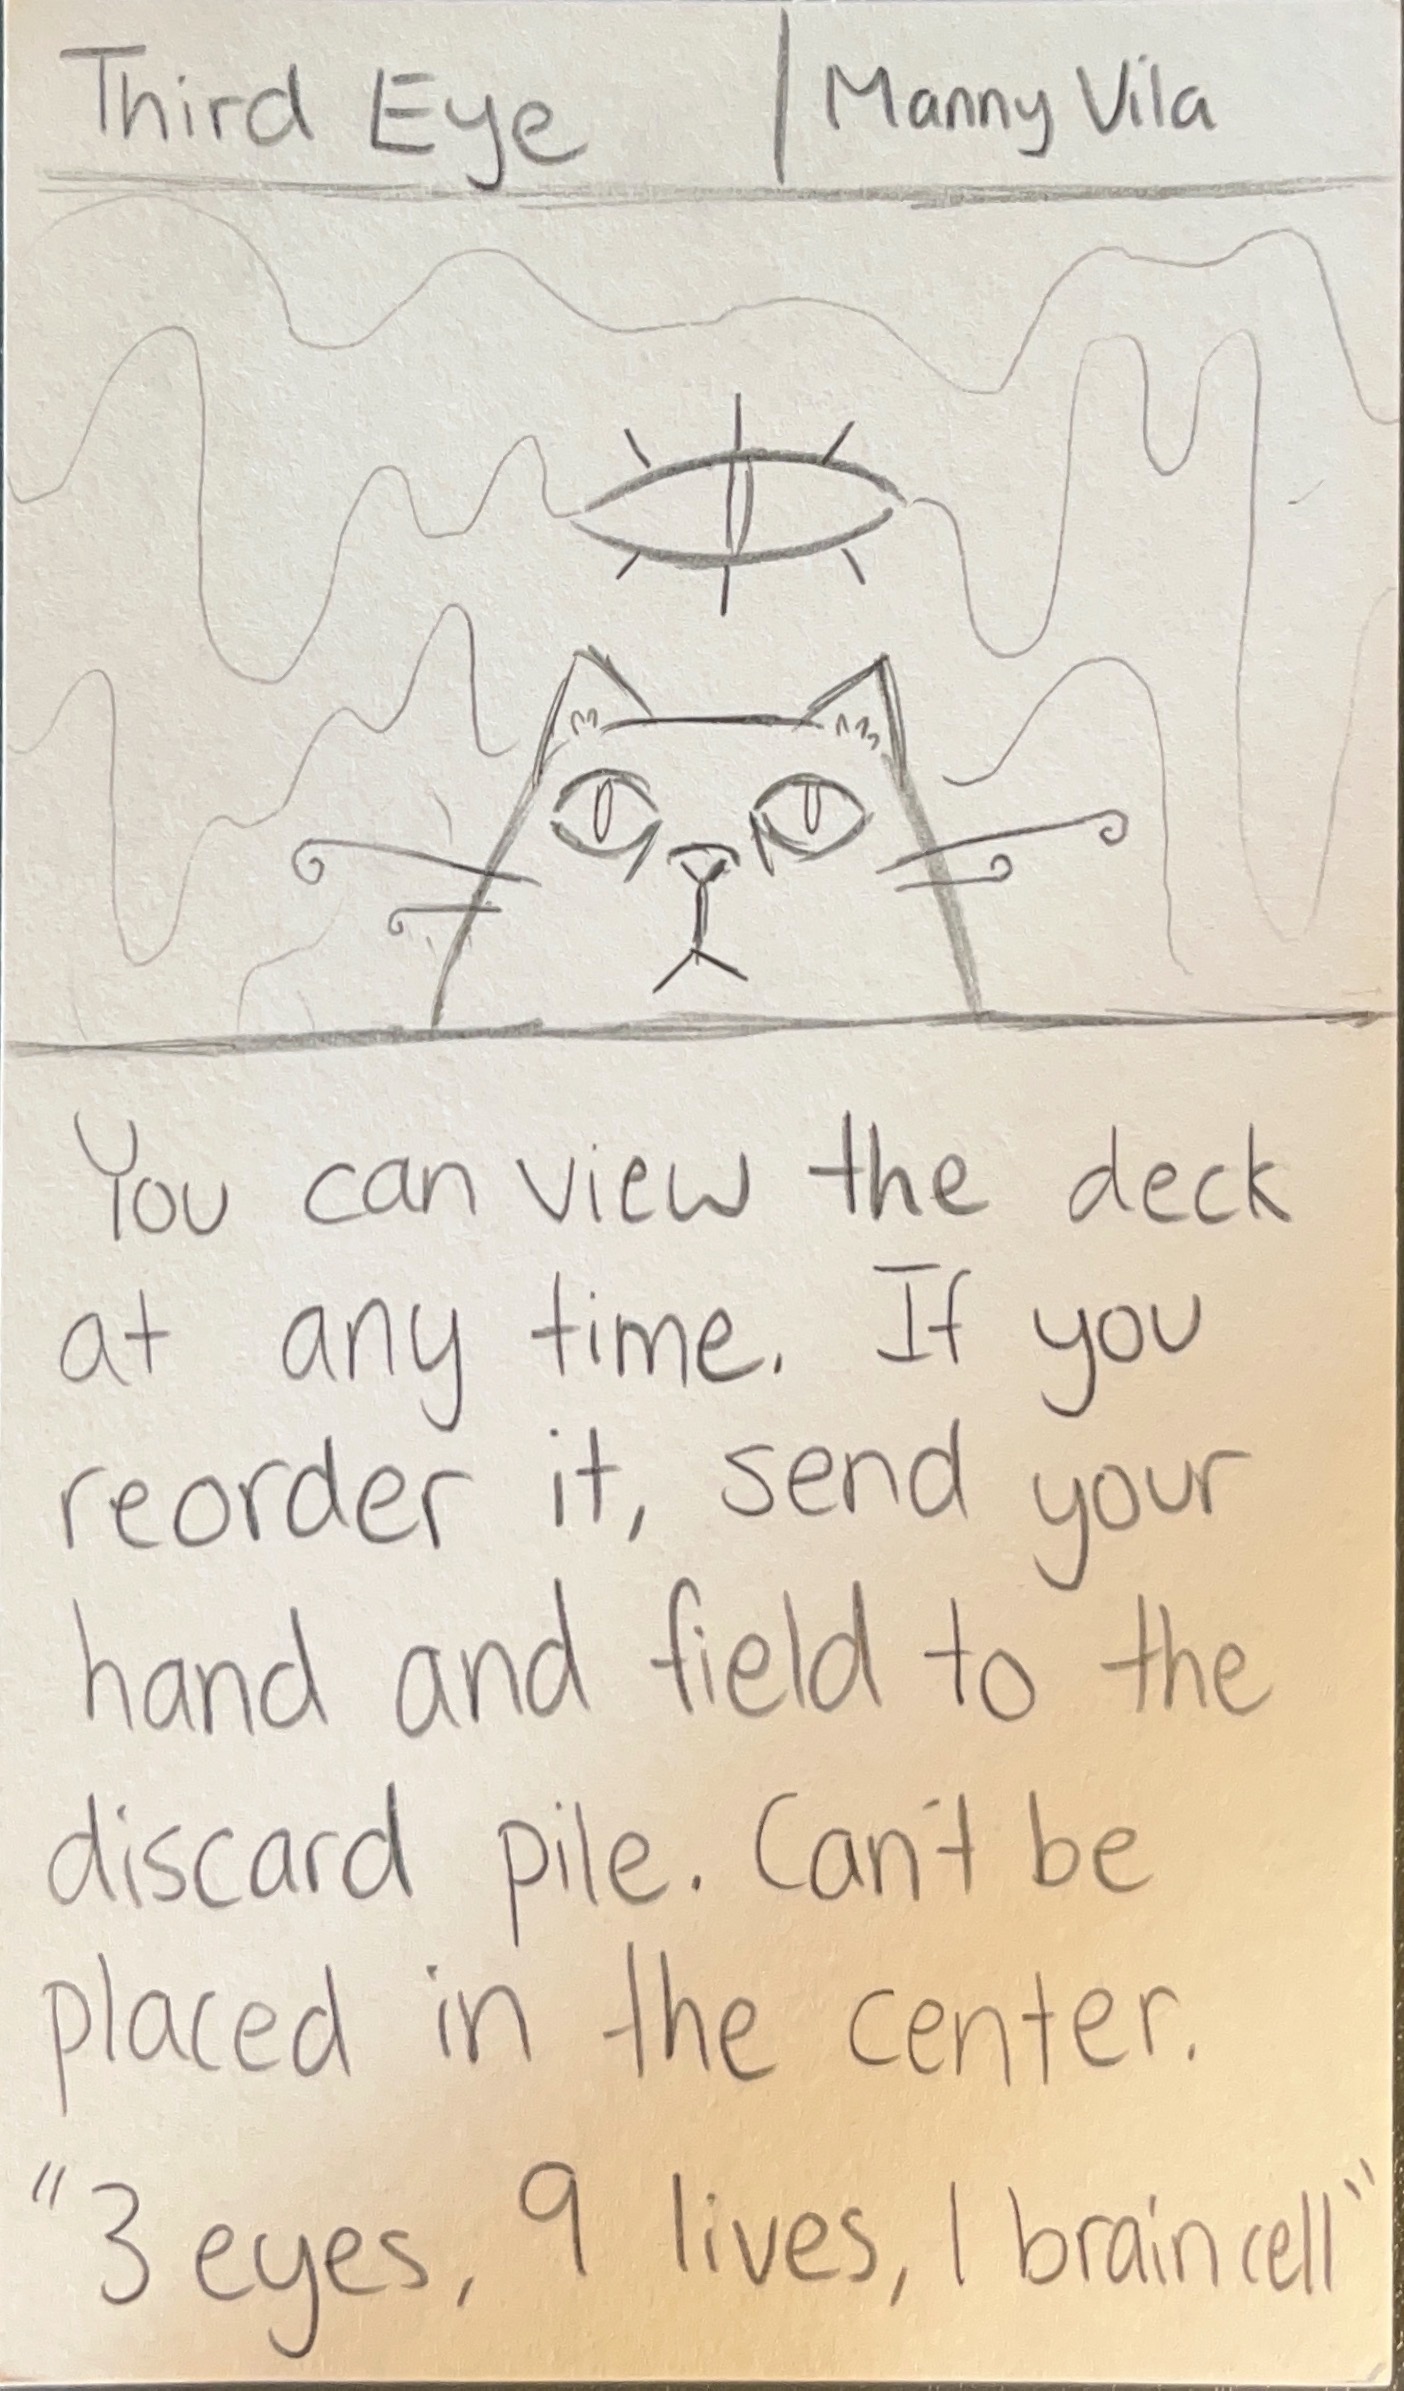 Third Eye | Manny Vila
You can view the deck
at any time. If you
reorder it, send your
hand and field to the
discard pile. Can't be
placed in the center.
"3 eyes, 9 lives, 1 braincell"